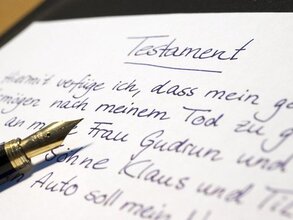 Testament
Hiermit verfüge ich, dass mein ge
mögen nach meinem Tod zu g
an m Frau Gudrun und
Söhne Klaus und Ti
n Auto soll mein